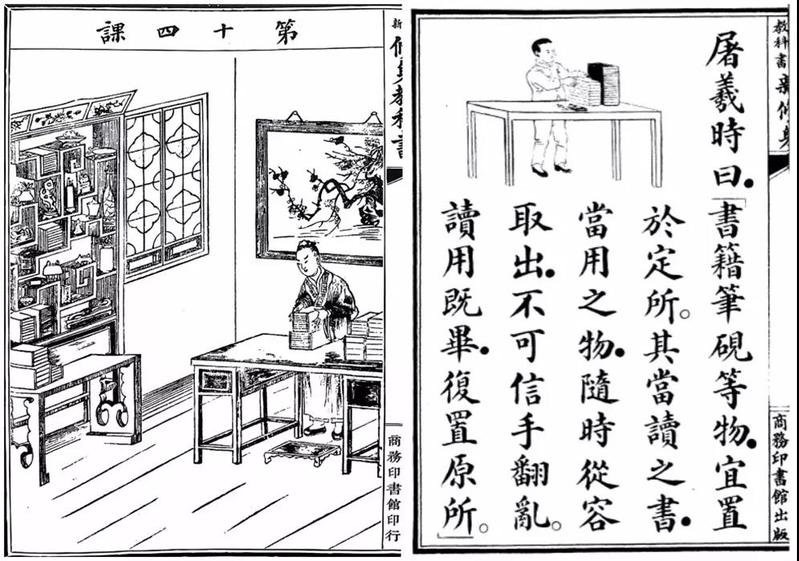 第十四課
新修身教科書
商務印書館印行
屠羲時曰．「書籍筆硯等物．宜置
於定所。其當讀之書．
當用之物．隨時從容
取出．不可信手翻亂。
讀用既畢．復置原所」。
教科書新修身
商務印書館出版